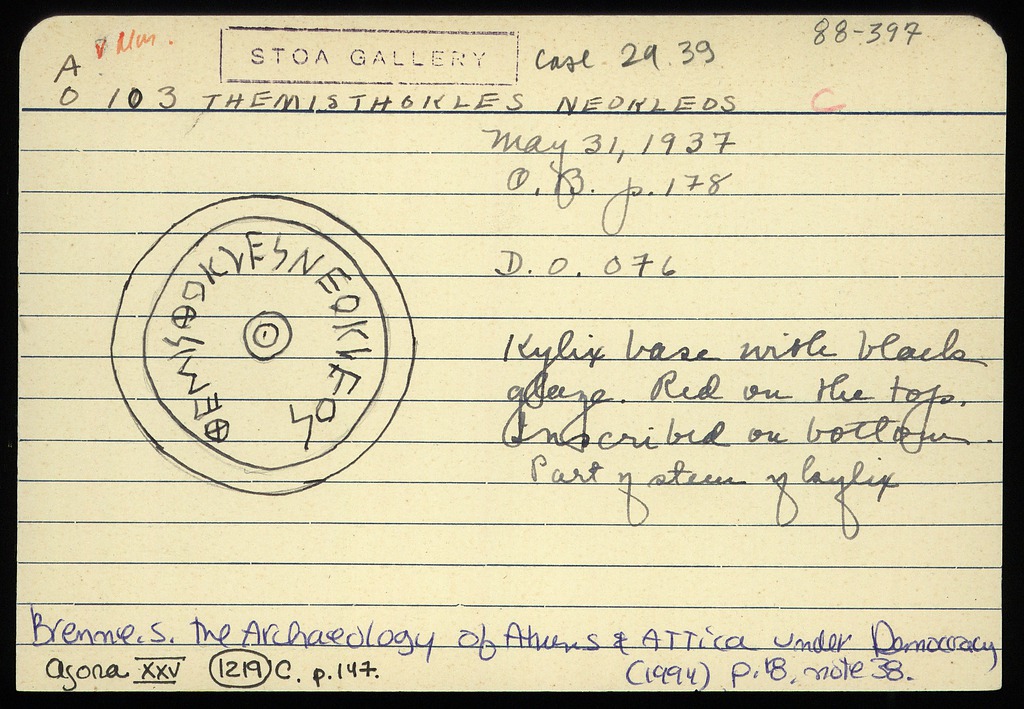 v Mus.
STOA GALLERY
Case 29.39
88-397
A
O 103 THEMISTHOKLES NEOKLEOS
C
May 31, 1937
O. B. p. 178
D. O. 076
Kylix base with black
glaze. Red on the top.
Inscribed on bottom.
Part of stem of kylix
Brenne. S. The Archaeology of Athens & Attica under Democracy
(1994) p. 18, note 38.
Agora XXV 1219 C. p. 147.